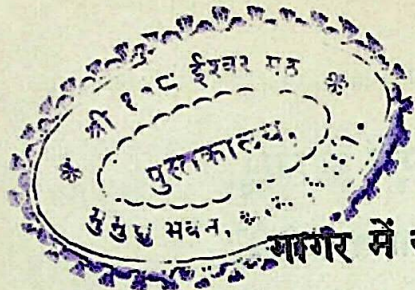 श्री १०८ ईश्वर मठ
पुस्तकालय,
मुमुक्षु भवन,
गागर में